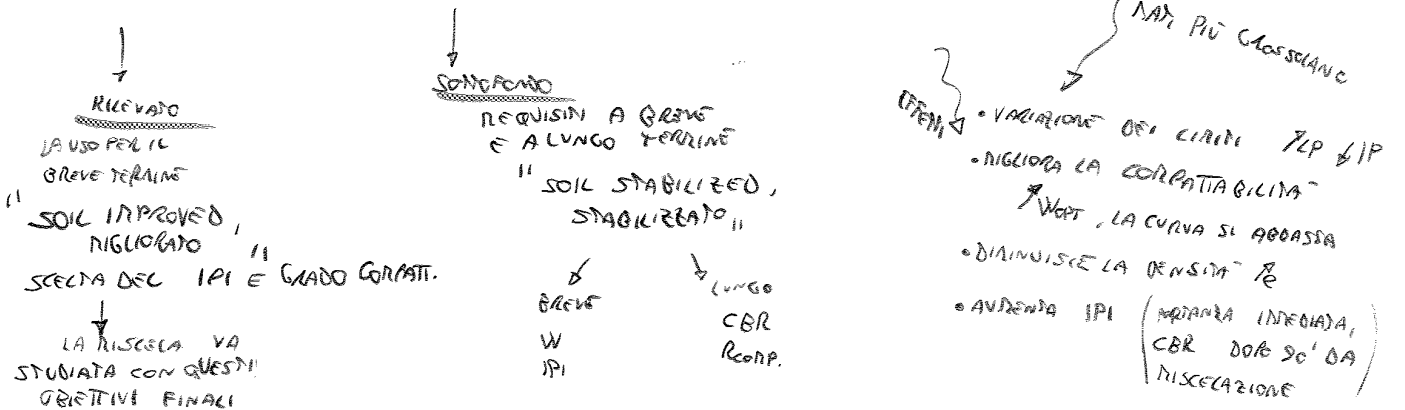 RILEVATO
LAVORO PER IL
BREVE TERMINE
"SOIL IMPROVED,
MIGLIORATO"
SCELTA DEL IPI E GRADO COMPATT.
LA MISCELA VA
STUDIATA CON QUESTI
OBIETTIVI FINALI
SOTTOFONDO
REQUISITI A BREVE
E A LUNGO TERMINE
"SOIL STABILIZED,
STABILIZZATO"
BREVE
W
IPI
LUNGO
CBR
Rcomp.
PIÙ GROSSOLANO
EFFETTI
• VARIAZIONE DEI LIMITI ↑LP ↓IP
• MIGLIORA LA COMPATTABILITÀ
↗WOPT, LA CURVA SI ABBASSA
• DIMINUISCE LA DENSITÀ ↗e
• AUMENTA IPI (PORTANZA IMMEDIATA,
CBR DOPO 90' DA
MISCELAZIONE)